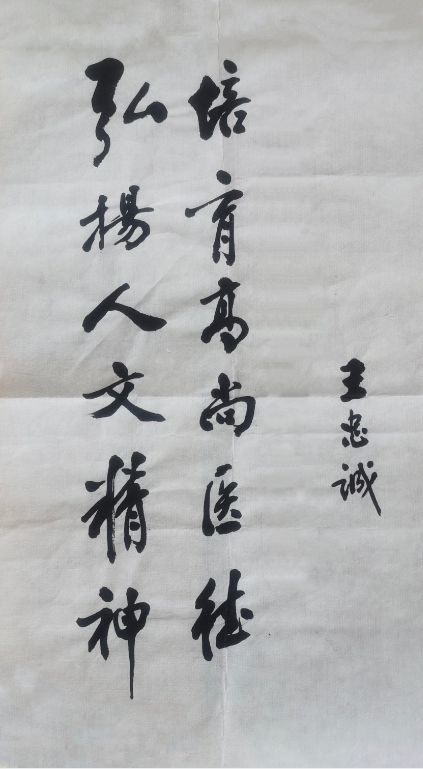 弘揚人文精神
培育高尚医德
王忠诚